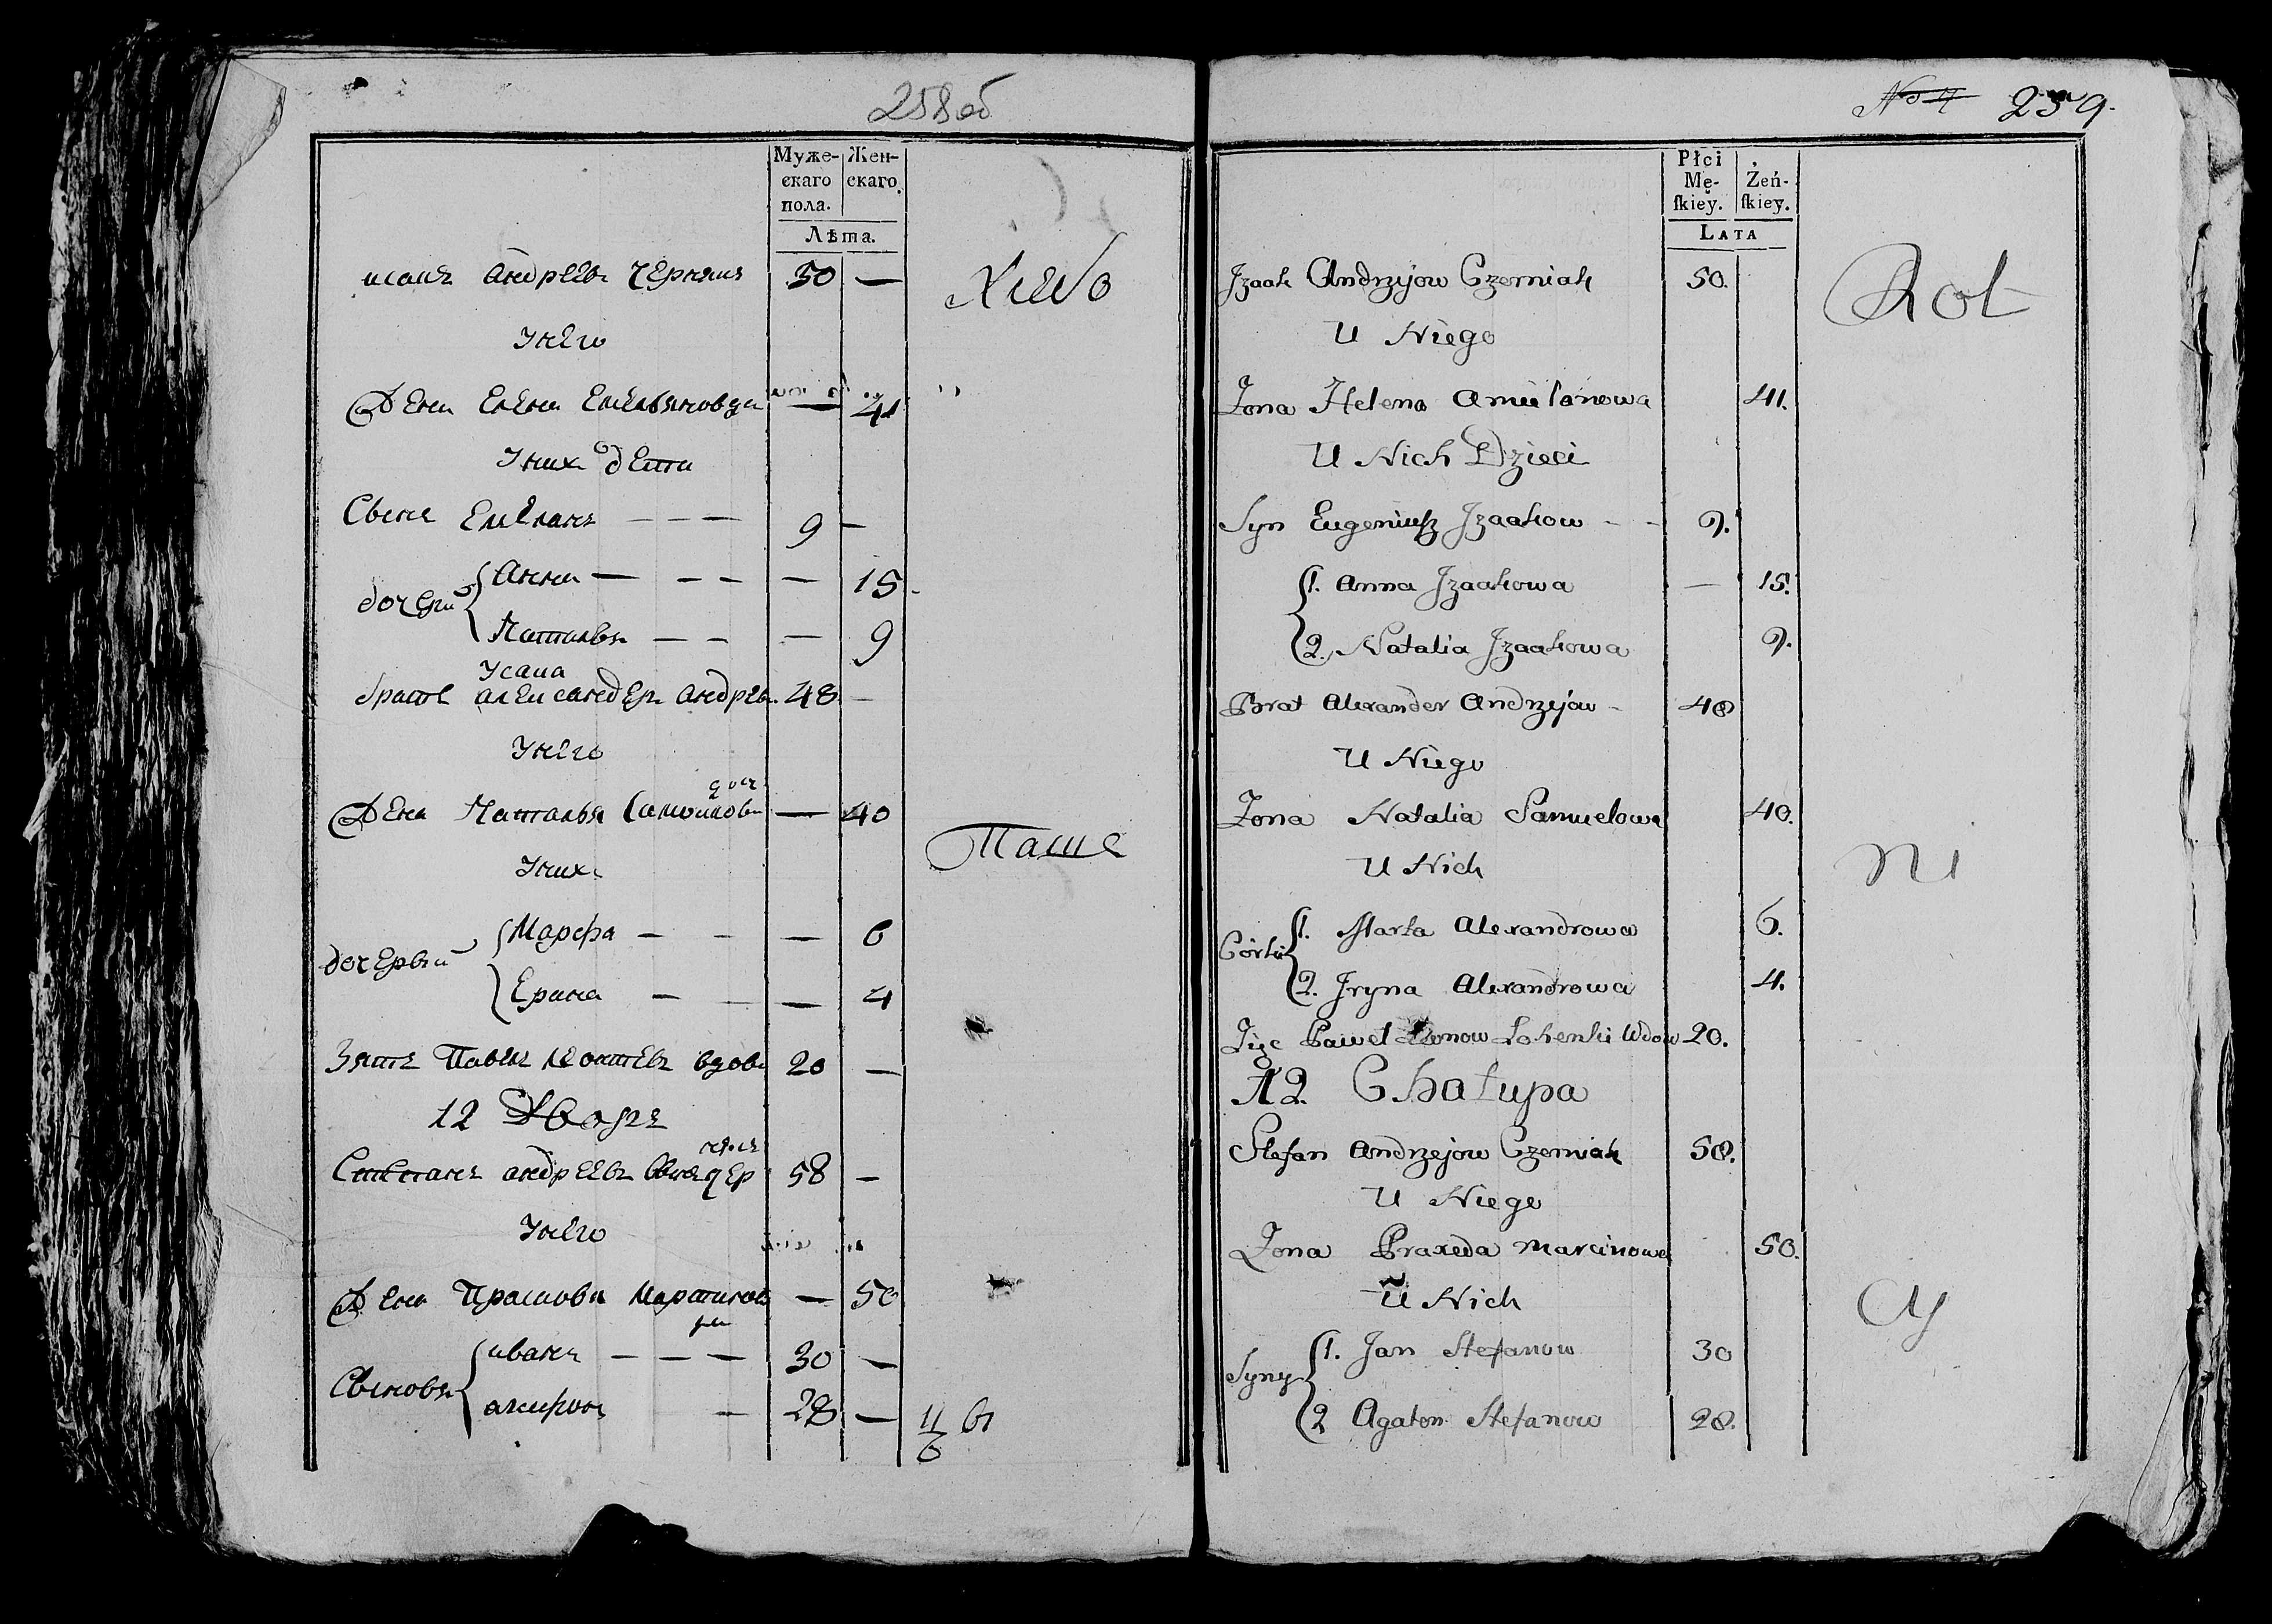 258об
Муже-
скаго
пола.
Жен-
скаго.
Лѣта.
исакъ андреевъ чернякъ 50 —
унего
Жена Елена Емельяновна — 41
Униха дети
Сынъ Емелианъ — — — 9 —
дочери { Анна — — — — 15
Наталья — — — 9
Исака
братъ александеръ андреевъ 48 —
Унего
Жена Наталья Самойлова дочъ — 40
Унихъ
Паше
дочерьи { Марфа — — — 6
Ерина — — — 4
Зять Павелъ вдовъ 20 —
12 Дворъ
Степанъ андреевъ чернякъ 58 —
Унего
Жена Прасковья Мартинова — 50
Сыновья { иванъ — — — 30 —
— 28 —
11
6
No 4 259.
Płci
Mę-
ſkiey.
Żeń-
ſkiey.
LATA
Jzaak Andrzyjow Czerniak 50.
Rot
U Niego
Zona Helena Amilanowa 41.
U Nich Dzieci
Syn Eugeniuſz Jzaakow - - 9.
{ 1. Anna Jzaakowa — 15.
2. Natalia Jzaakowa 9.
Brat Alexander Andrzejow - 48
U Niego
Zona Natalia Samuelowa 40.
U Nich
ni
Córki { 1. Marta Alexandrowa 6.
2. Jryna Alexandrowa 4.
Zięc Paweł Leonow Wdow 20.
12. Chałupa
Stefan Andrzejow Czerniak 58.
U Niego
Zona Praxeda Marcinowa 50.
U Nich
Syny { 1. Jan Stefanow 30
2 Agaton Stefanow 28.